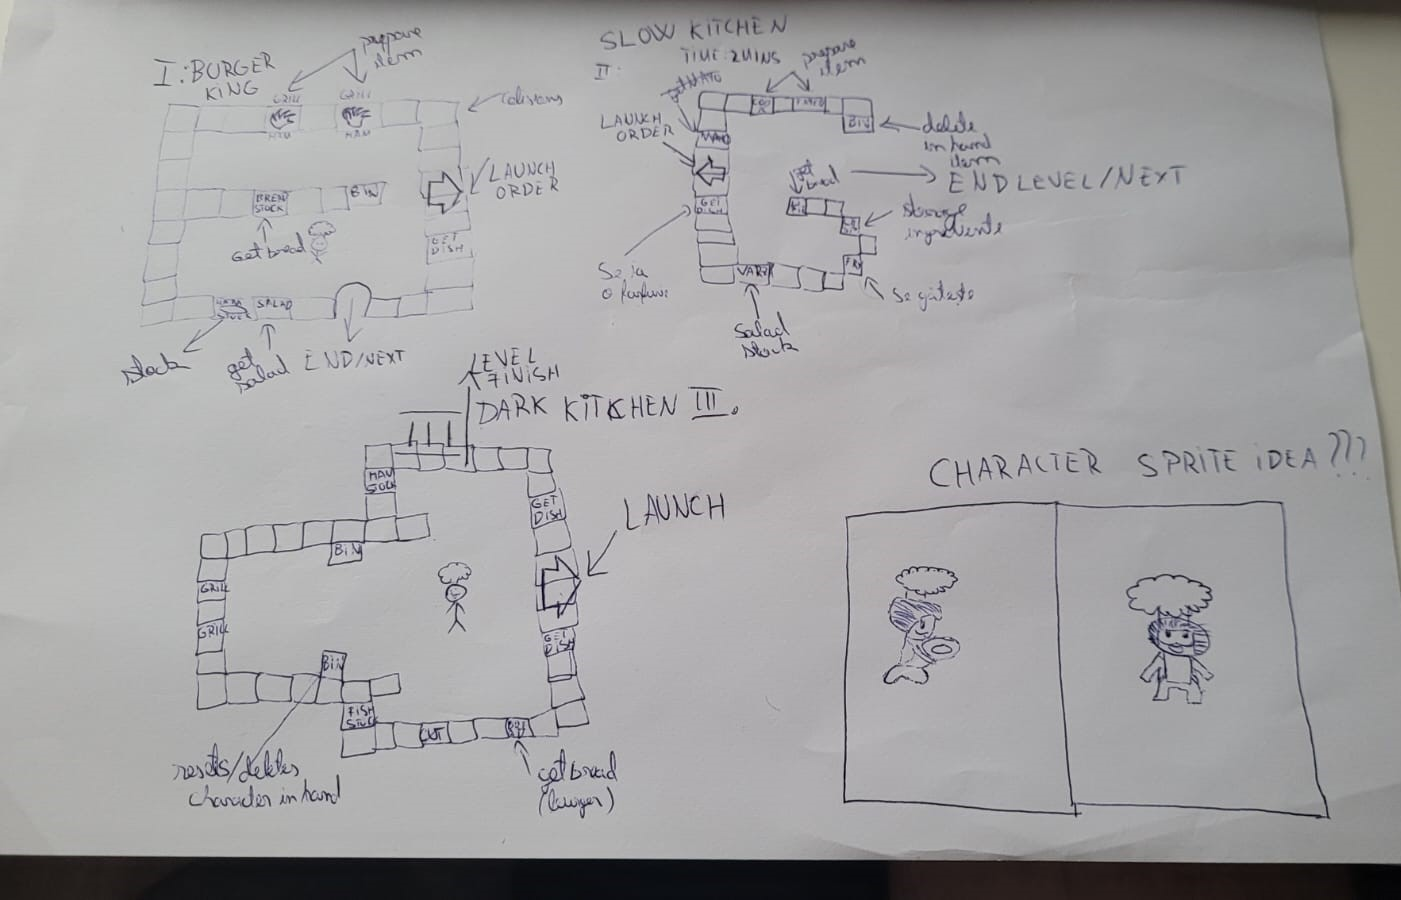 I: BURGER
KING
prepare
item
GRILL
GRILL
Colisions
LAUNCH
ORDER
BREAD
STOCK
BIN
Get bread
GET
DISH
SALAD
stock
get
salad
END/NEXT
SLOW KITCHEN
TIME: 2MINS
II:
prepare
item
LAUNCH
ORDER
BIN
delete
in hand
item
get
bread
END LEVEL/NEXT
GET
DISH
storage
ingrediente
Se ia
o farfurie
VARZA
FRY
Se gătește
Salad
stock
LEVEL
FINISH
DARK KITCHEN III.
GET
DISH
LAUNCH
BIN
GRILL
GRILL
GET
DISH
BIN
FISH
STOCK
CUT
resets/deletes
character in hand
get bread
CHARACTER SPRITE IDEA???